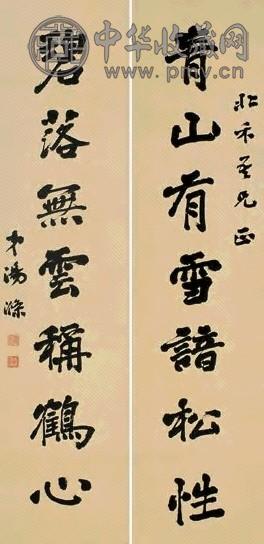 中华收藏网
www.pmv.cn
禾吾兄正
青山有雪諳松性
碧落無雲稱鶴心
弟湯滌